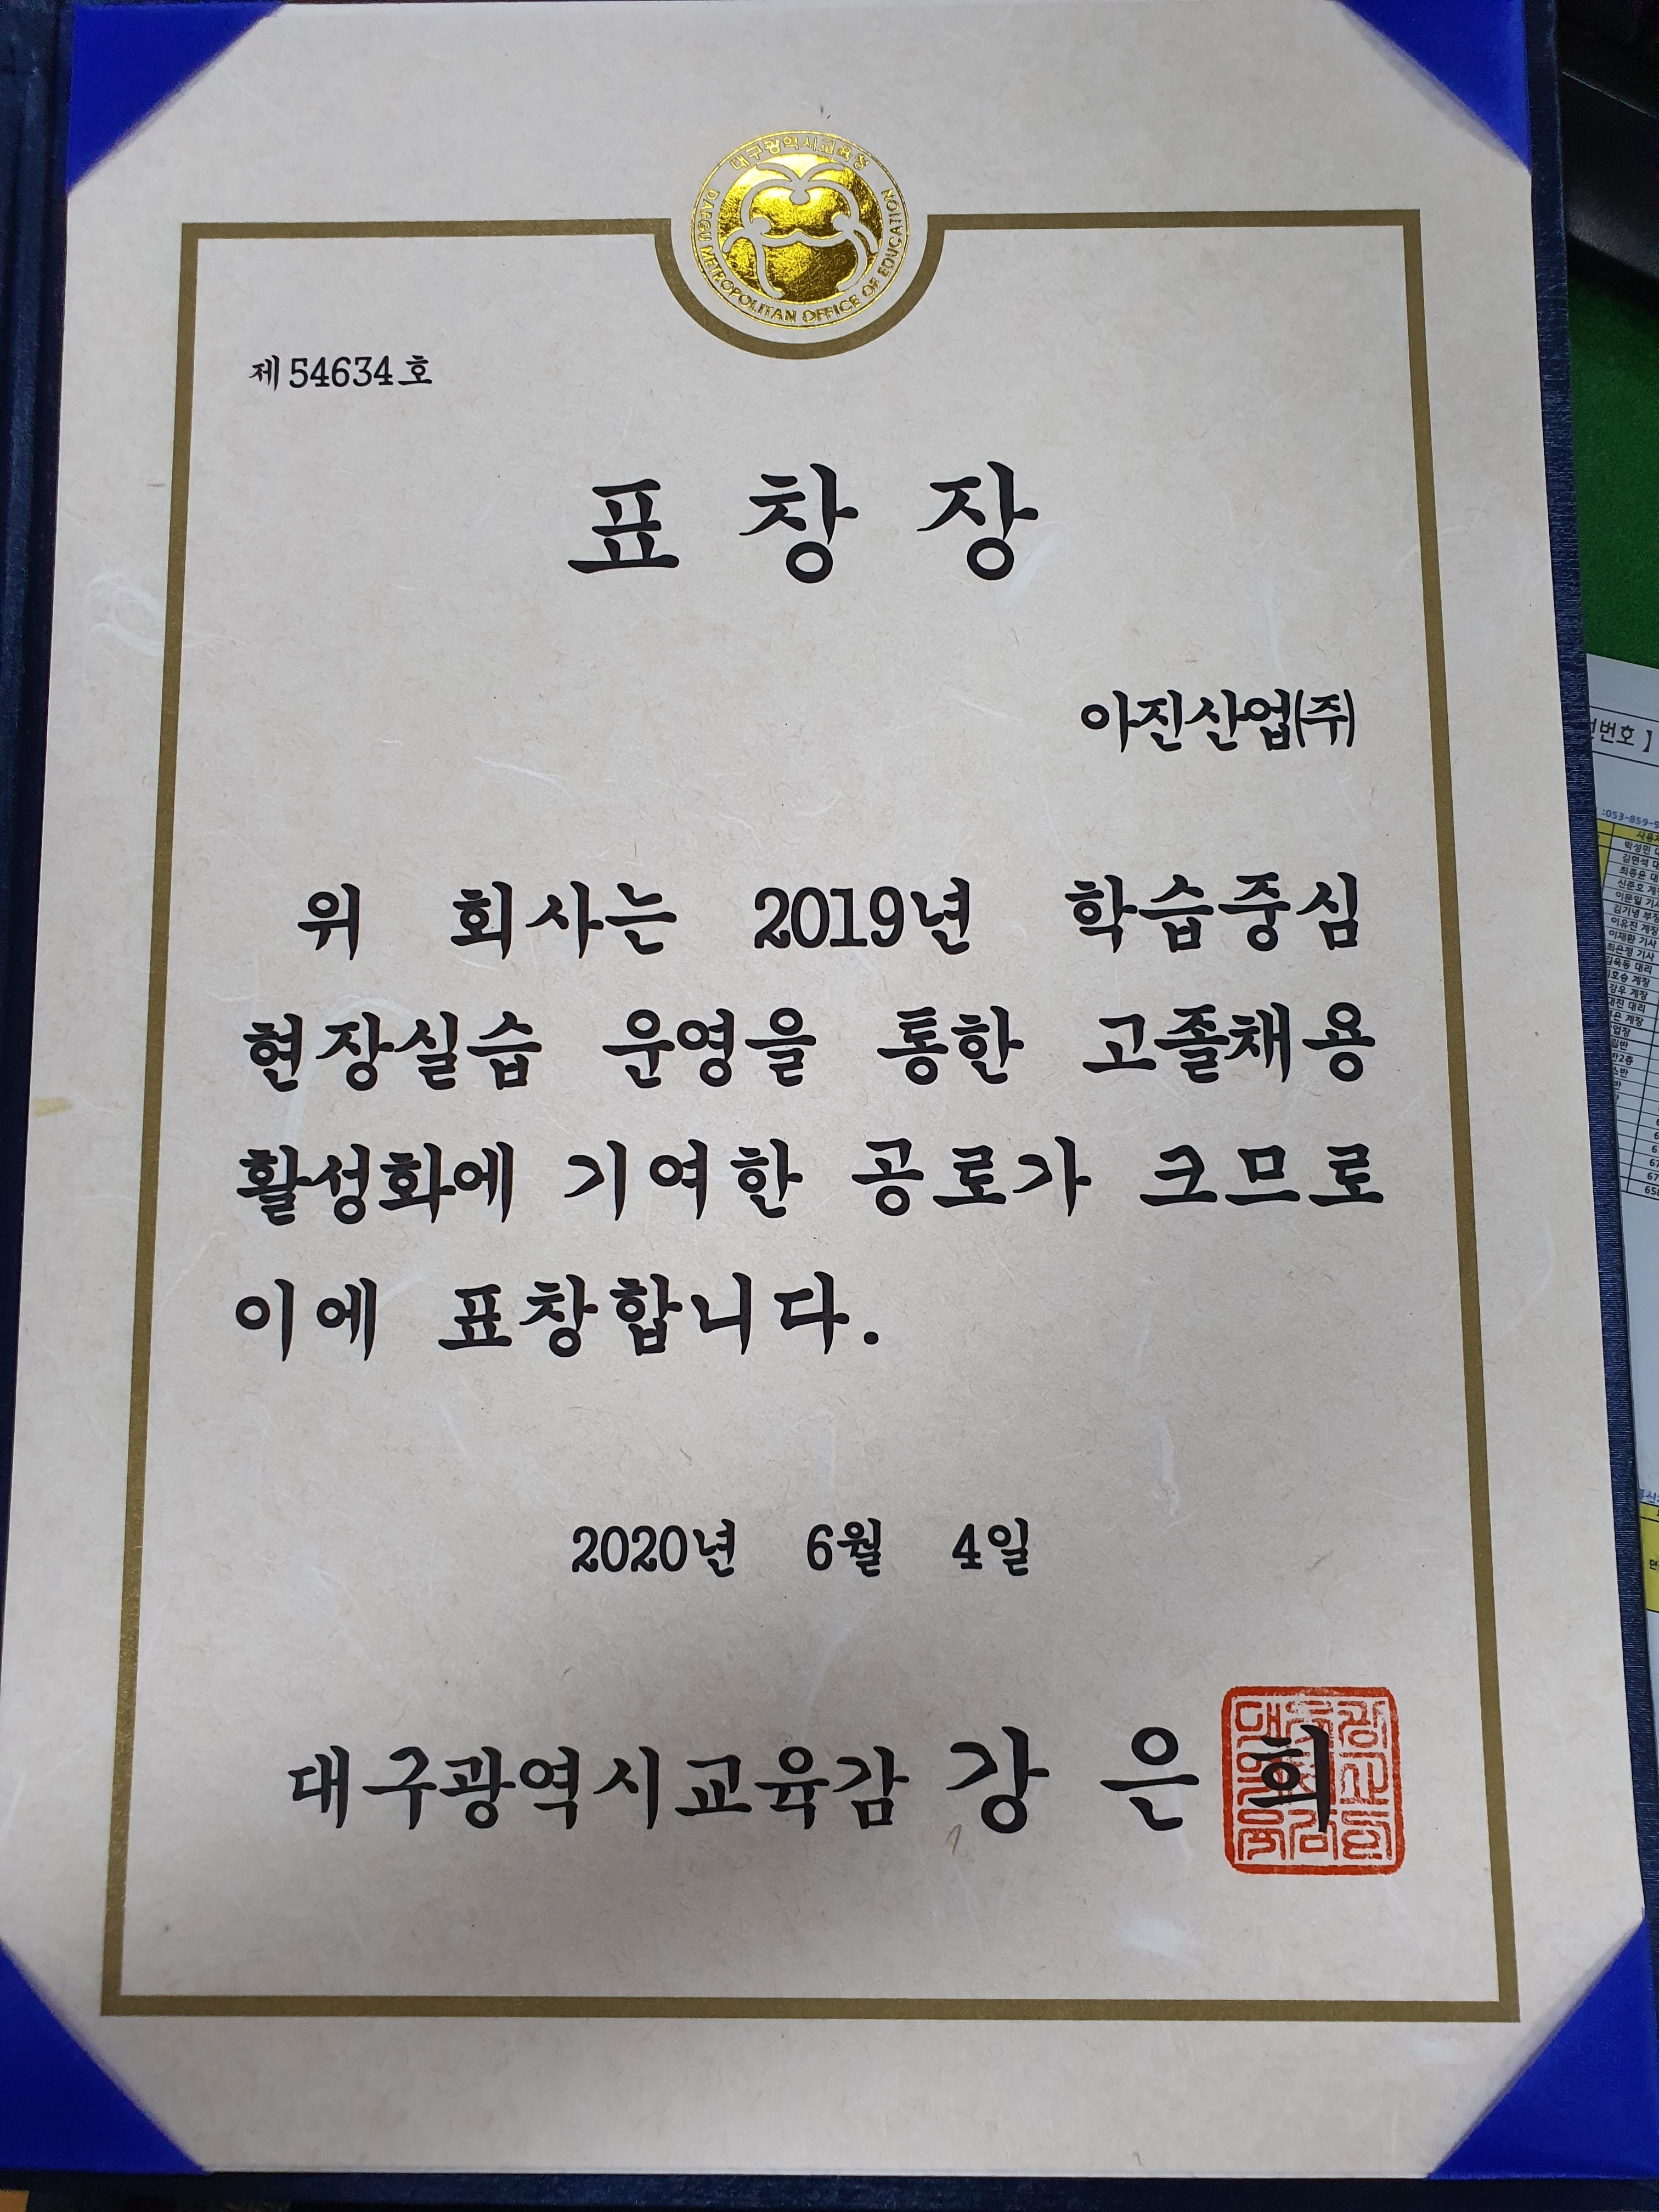 대구광역시교육청
DAEGU METROPOLITAN OFFICE OF EDUCATION
제 54634 호
표 창 장
아진산업(주)
위 회사는 2019년 학습중심
현장실습 운영을 통한 고졸채용
활성화에 기여한 공로가 크므로
이에 표창합니다.
2020년 6월 4일
대구광역시교육감 강 은 희
번호 】
:053-859-9